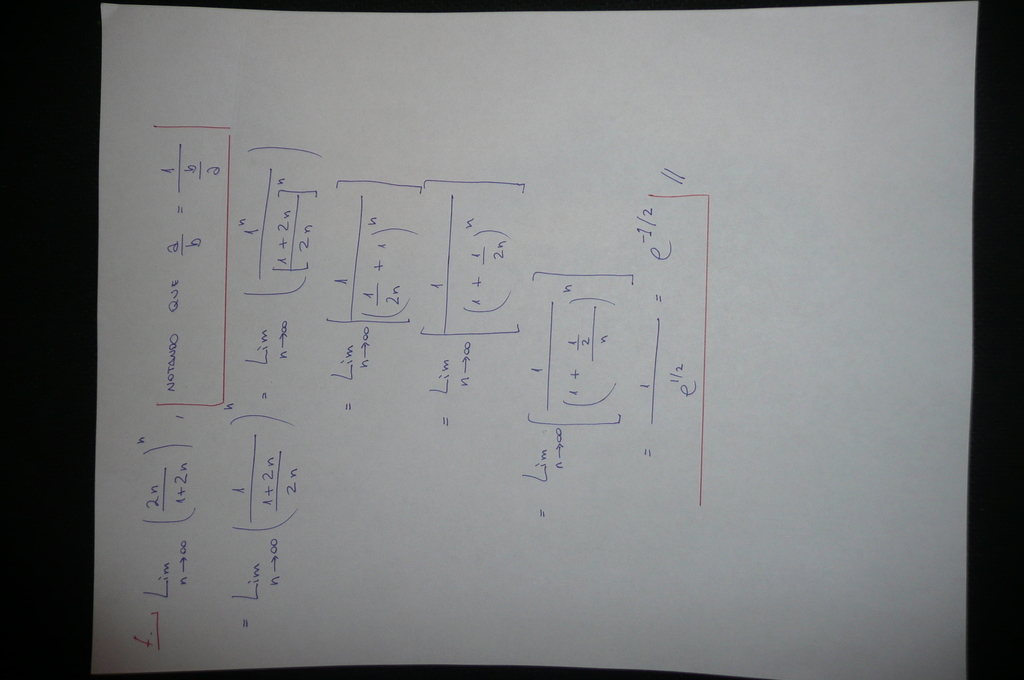 f.) Lim n→∞ (2n / 1+2n)^n , NOTANDO QUE a/b = 1 / (b/a)
= Lim n→∞ (1 / ((1+2n) / 2n))^n = Lim n→∞ (1^n / [(1+2n) / 2n]^n)
= Lim n→∞ [1 / (1/2n + 1)^n]
= Lim n→∞ [1 / (1 + 1/2n)^n]
= Lim n→∞ [1 / (1 + (1/2)/n)^n]
= 1 / e^1/2 = e^-1/2 //